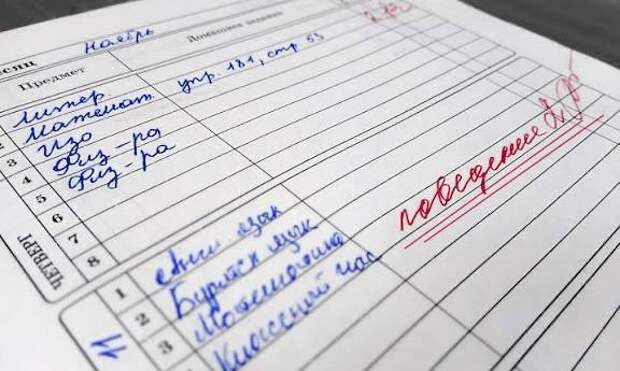 ноябрь
Предмет
Домашнее задание
литер
математ упр 181, стр 53
Изо
Физ-ра
Физ-ра
2
3
4
5
6
7
8
ЧЕТВЕРГ
поведение 2
11
1 Англ язык
2 Бурятск язык
3 Математика
Классный час